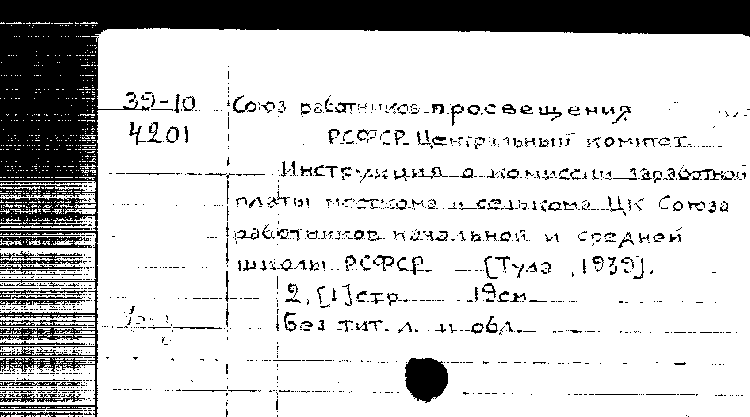 39-10 Союз работников просвещения
4201 РСФСР Центральный комитет.
Инструкция о комиссии заработной
платы месткома и селькома ЦК Союза
работников начальной и средней
школы РСФСР. [Тула, 1939].
2, [1] стр. 19см.
Без тит. л. и обл.